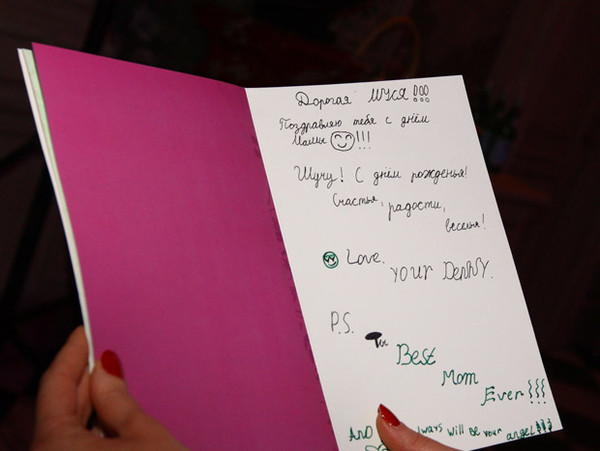 Дорогая Муся!!!
Поздравляю тебя с днём
Мамы !!!
Шучу! С днём рожденья!
Счастья, радости,
веселья!
Love,
YOUR Denny.
P.S.
Best
Mom
Ever!!!
And always will be your angel!!!